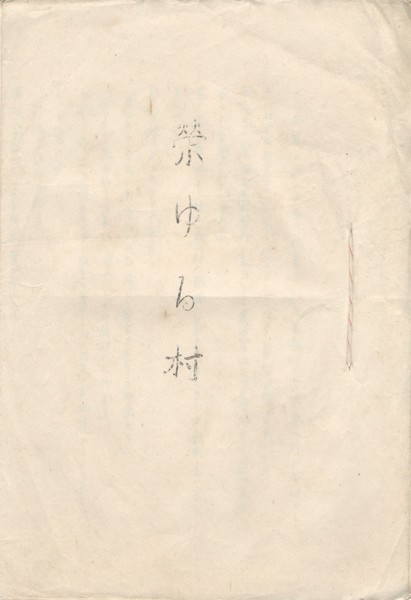 榮ゆる村